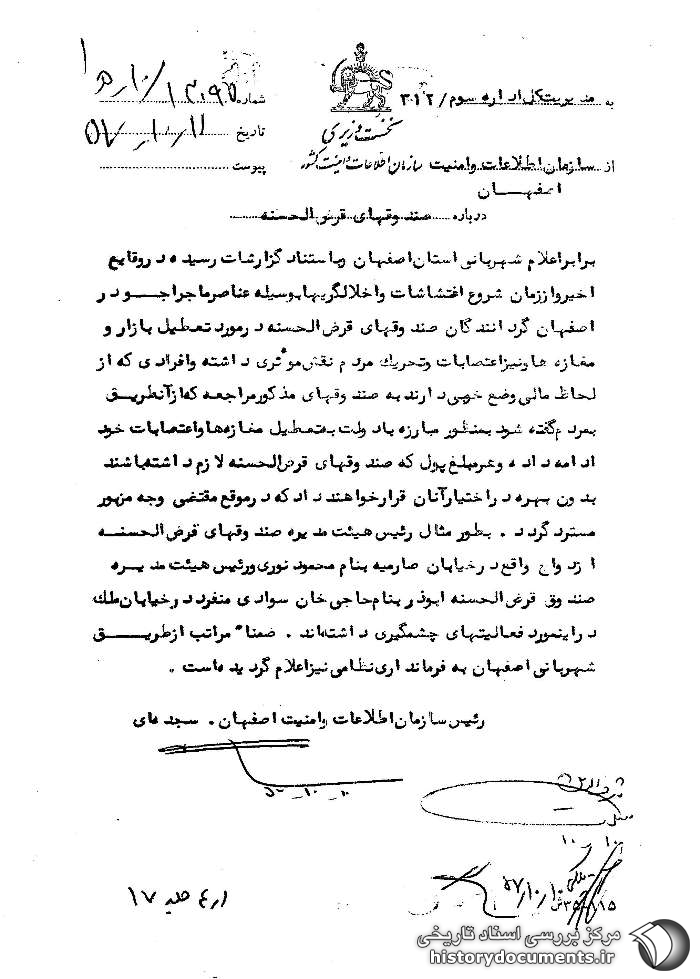 به مدیریت کل اداره سوم / ۳۱۲
شماره ۱۳۰۹۵ / ۱۰ ه ۱
نخست وزیری
تاریخ ۵۷/۱۰/۱۱
از سازمان اطلاعات وامنیت سازمان اطلاعات و امنیت کشور
پیوست
اصفهان
درباره صندوقهای قرض الحسنه
برابر اعلام شهربانی استان اصفهان وباستناد گزارشات رسیده در وقایع
اخیر واززمان شروع اغتشاشات واخلالگریها بوسیله عناصر ماجراجو در
اصفهان گردانندگان صندوقهای قرض الحسنه درمورد تعطیل بازار و
مغازه ها ونیز اعتصابات وتحریك مردم نقش موثری داشته وافرادی که از
لحاظ مالی وضع خوبی دارند به صندوقهای مذکور مراجعه که از آنطریق
بمردم گفته شود بمنظور مبارزه با دولت به تعطیل مغازه ها واعتصابات خود
ادامه داده وهر مبلغ پول که صندوقهای قرض الحسنه لازم داشته باشند
بدون بهره در اختیار آنان قرار خواهند داد که در موقع مقتضی وجه مزبور
مسترد گردد . بطور مثال رئیس هیئت مدیره صندوقهای قرض الحسنه
ازدواج واقع در خیابان صارمیه بنام محمود نوری ورئیس هیئت مدیره
صندوق قرض الحسنه ابوذر بنام حاجی خان سوادی منفرد در خیابان ملك
در اینمورد فعالیتهای چشمگیری داشته اند . ضمنا" مراتب از طریق
شهربانی اصفهان به فرمانداری نظامی نیز اعلام گردیده است .
رئیس سازمان اطلاعات وامنیت اصفهان . سجده ای
۵۷/۱۰/۱۰
مرکز بررسی اسناد تاریخی
historydocuments.ir